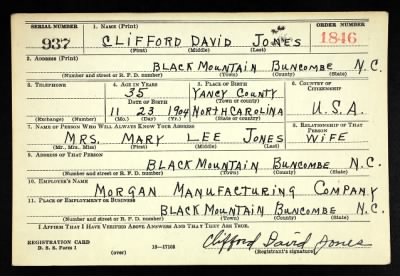 SERIAL NUMBER 1. NAME (Print) ORDER NUMBER
937 CLIFFORD DAVID JONES 1846
(First) (Middle) (Last)
2. ADDRESS (Print)
BLACK MOUNTAIN BUNCOMBE N.C.
(Number and street or R. F. D. number) (Town) (County) (State)
3. TELEPHONE 4. AGE IN YEARS 5. PLACE OF BIRTH 6. COUNTRY OF CITIZENSHIP
35 YANCY COUNTY
DATE OF BIRTH (Town or county)
11 23 1904 NORTH CAROLINA U.S.A.
(Exchange) (Number) (Mo.) (Day) (Yr.) (State or country)
7. NAME OF PERSON WHO WILL ALWAYS KNOW YOUR ADDRESS 8. RELATIONSHIP OF THAT PERSON
MRS. MARY LEE JONES WIFE
(Mr., Mrs., Miss) (First) (Middle) (Last)
9. ADDRESS OF THAT PERSON
BLACK MOUNTAIN BUNCOMBE N.C.
(Number and street or R. F. D. number) (Town) (County) (State)
10. EMPLOYER'S NAME
MORGAN MANUFACTURING COMPANY
11. PLACE OF EMPLOYMENT OR BUSINESS
BLACK MOUNTAIN BUNCOMBE N.C.
(Number and street or R. F. D. number) (Town) (County) (State)
I AFFIRM THAT I HAVE VERIFIED ABOVE ANSWERS AND THAT THEY ARE TRUE.
REGISTRATION CARD
D. S. S. Form 1 (over) 16—17105 Clifford David Jones
(Registrant's signature)